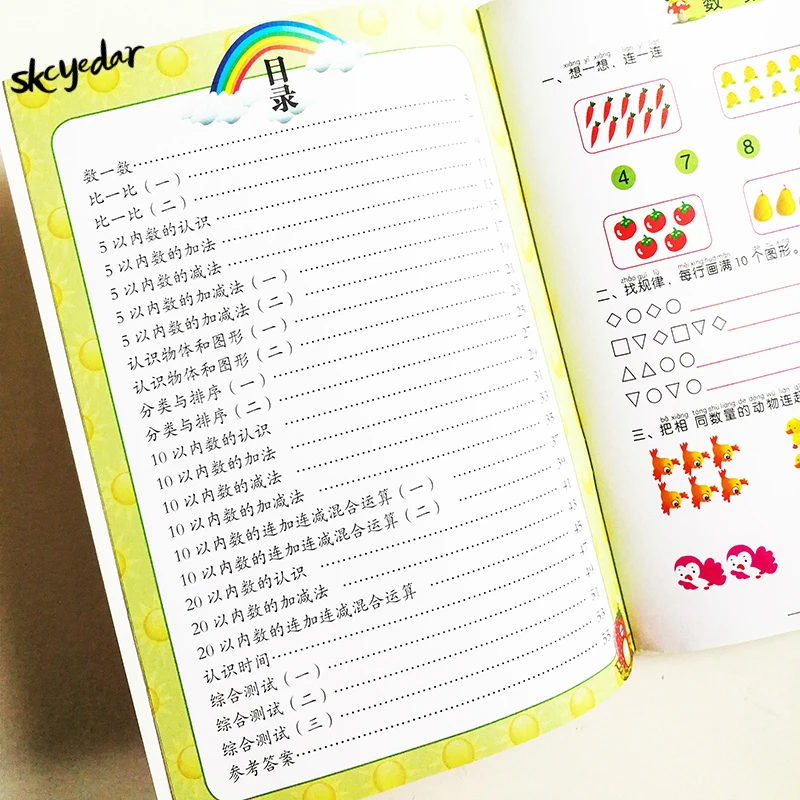 skcyedar
目录
数一数
比一比（一）
比一比（二）
5以内数的认识
5以内数的加法
5以内数的减法
5以内数的加减法（一）
5以内数的加减法（二）
认识物体和图形（一）
认识物体和图形（二）
分类与排序（一）
分类与排序（二）
10以内数的认识
10以内数的加法
10以内数的减法
10以内数的加减法
10以内数的连加连减混合运算（一）
10以内数的连加连减混合运算（二）
20以内数的认识
20以内数的加减法
20以内数的连加连减混合运算
认识时间
综合测试（一）
综合测试（二）
综合测试（三）
参考答案
数
xiǎng yì xiǎng lián yì lián
一、想一想，连一连
4 7 8
zhǎo guī lǜ měi xíng huà mǎn
二、找规律，每行画满10个图形。
bǎ xiāng tóng shù liàng de dòng wù lián
三、把相同数量的动物连起